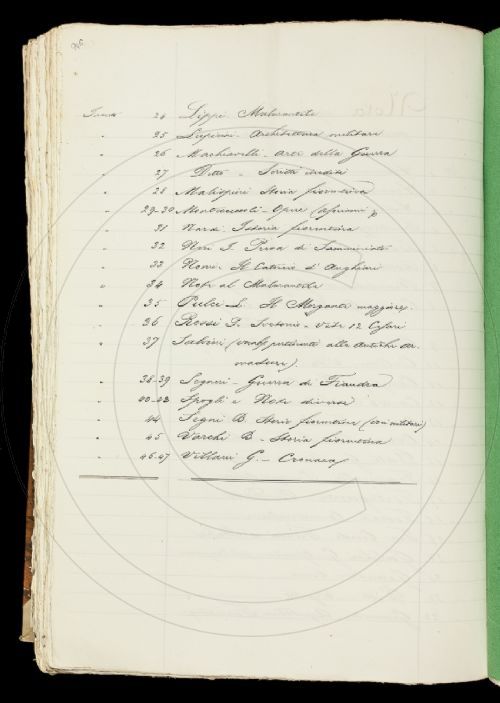 24 Lippi - Malmantile
" 25 Lupicini - Architettura militare
" 26 Machiavelli - Arte della Guerra
" 27 Detto - Scritti inediti
" 28 Malispini Storia fiorentina
" 29-30 Montecuccoli - Opere
" 31 Nardi - Istoria fiorentina
" 32 Neri I. Presa di Samminiato
" 33 Nomi - Il Catorcio d'Anghiari
" 34 Note al Malmantile
" 35 Pulci L. Il Morgante maggiore
" 36 Rossi P. Svetonio - Vite 12 Cesari
" 37 (vocab. pertinenti alle Antiche Ar-
madure)
" 38-39 Segneri - Guerra di Fiandra
" 40-43 Spogli e Note diverse
" 44 Segni B. Storie fiorentine (voci militari)
" 45 Varchi B - Storia fiorentina
" 46-47 Villani G. - Cronaca